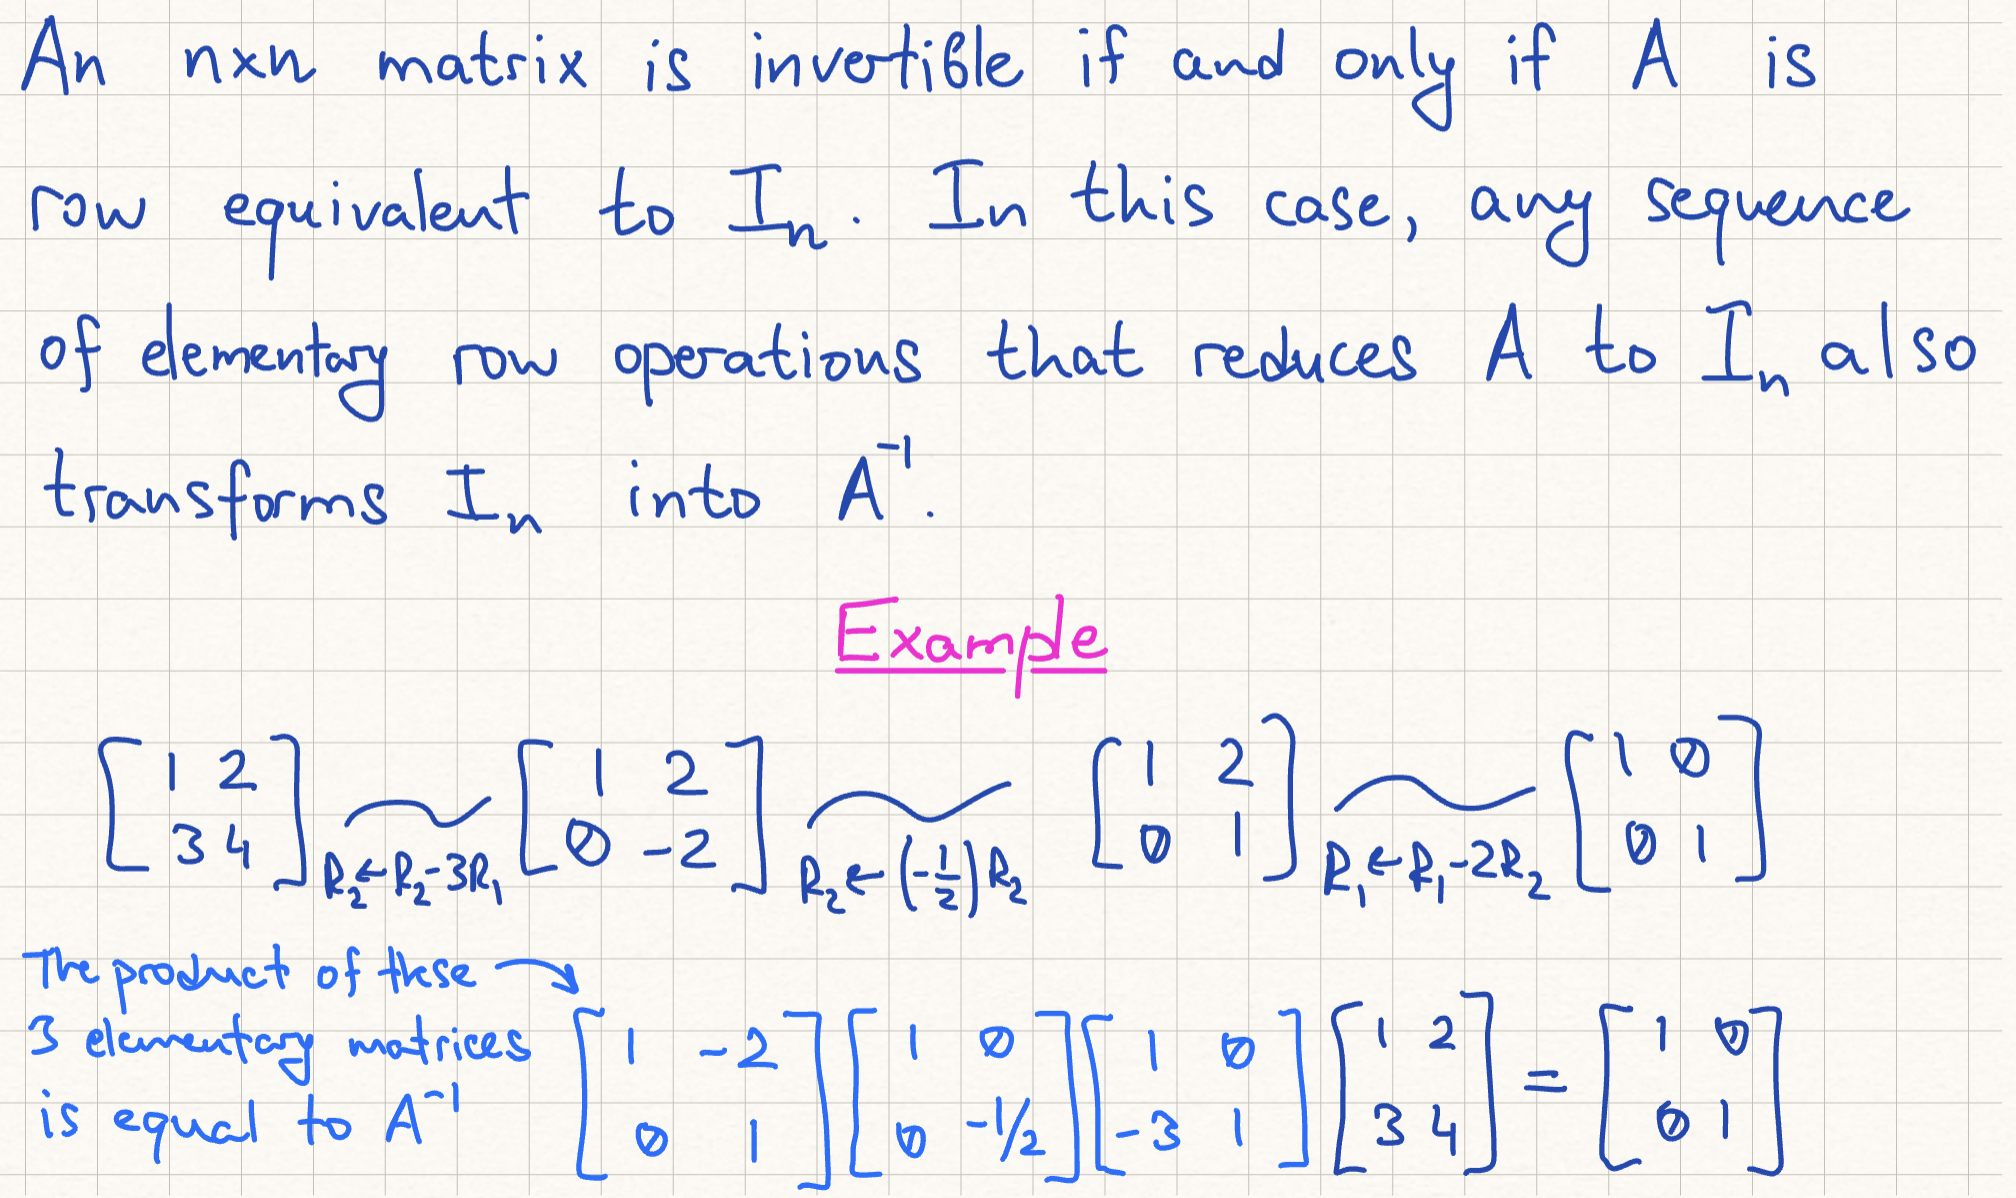 An nxn matrix is invertible if and only if A is
row equivalent to Iₙ. In this case, any sequence
of elementary row operations that reduces A to Iₙ also
transforms Iₙ into A⁻¹.
Example
[1 2; 3 4] ~ R₂←R₂-3R₁ [1 2; 0 -2] ~ R₂←(-1/2)R₂ [1 2; 0 1] ~ R₁←R₁-2R₂ [1 0; 0 1]
The product of these →
3 elementary matrices
is equal to A⁻¹
[1 -2; 0 1] [1 0; 0 -1/2] [1 0; -3 1] [1 2; 3 4] = [1 0; 0 1]